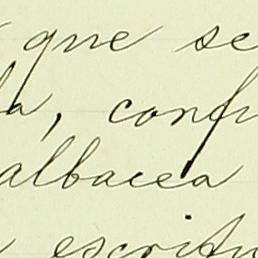 que se
la, conf
albacea
escritu